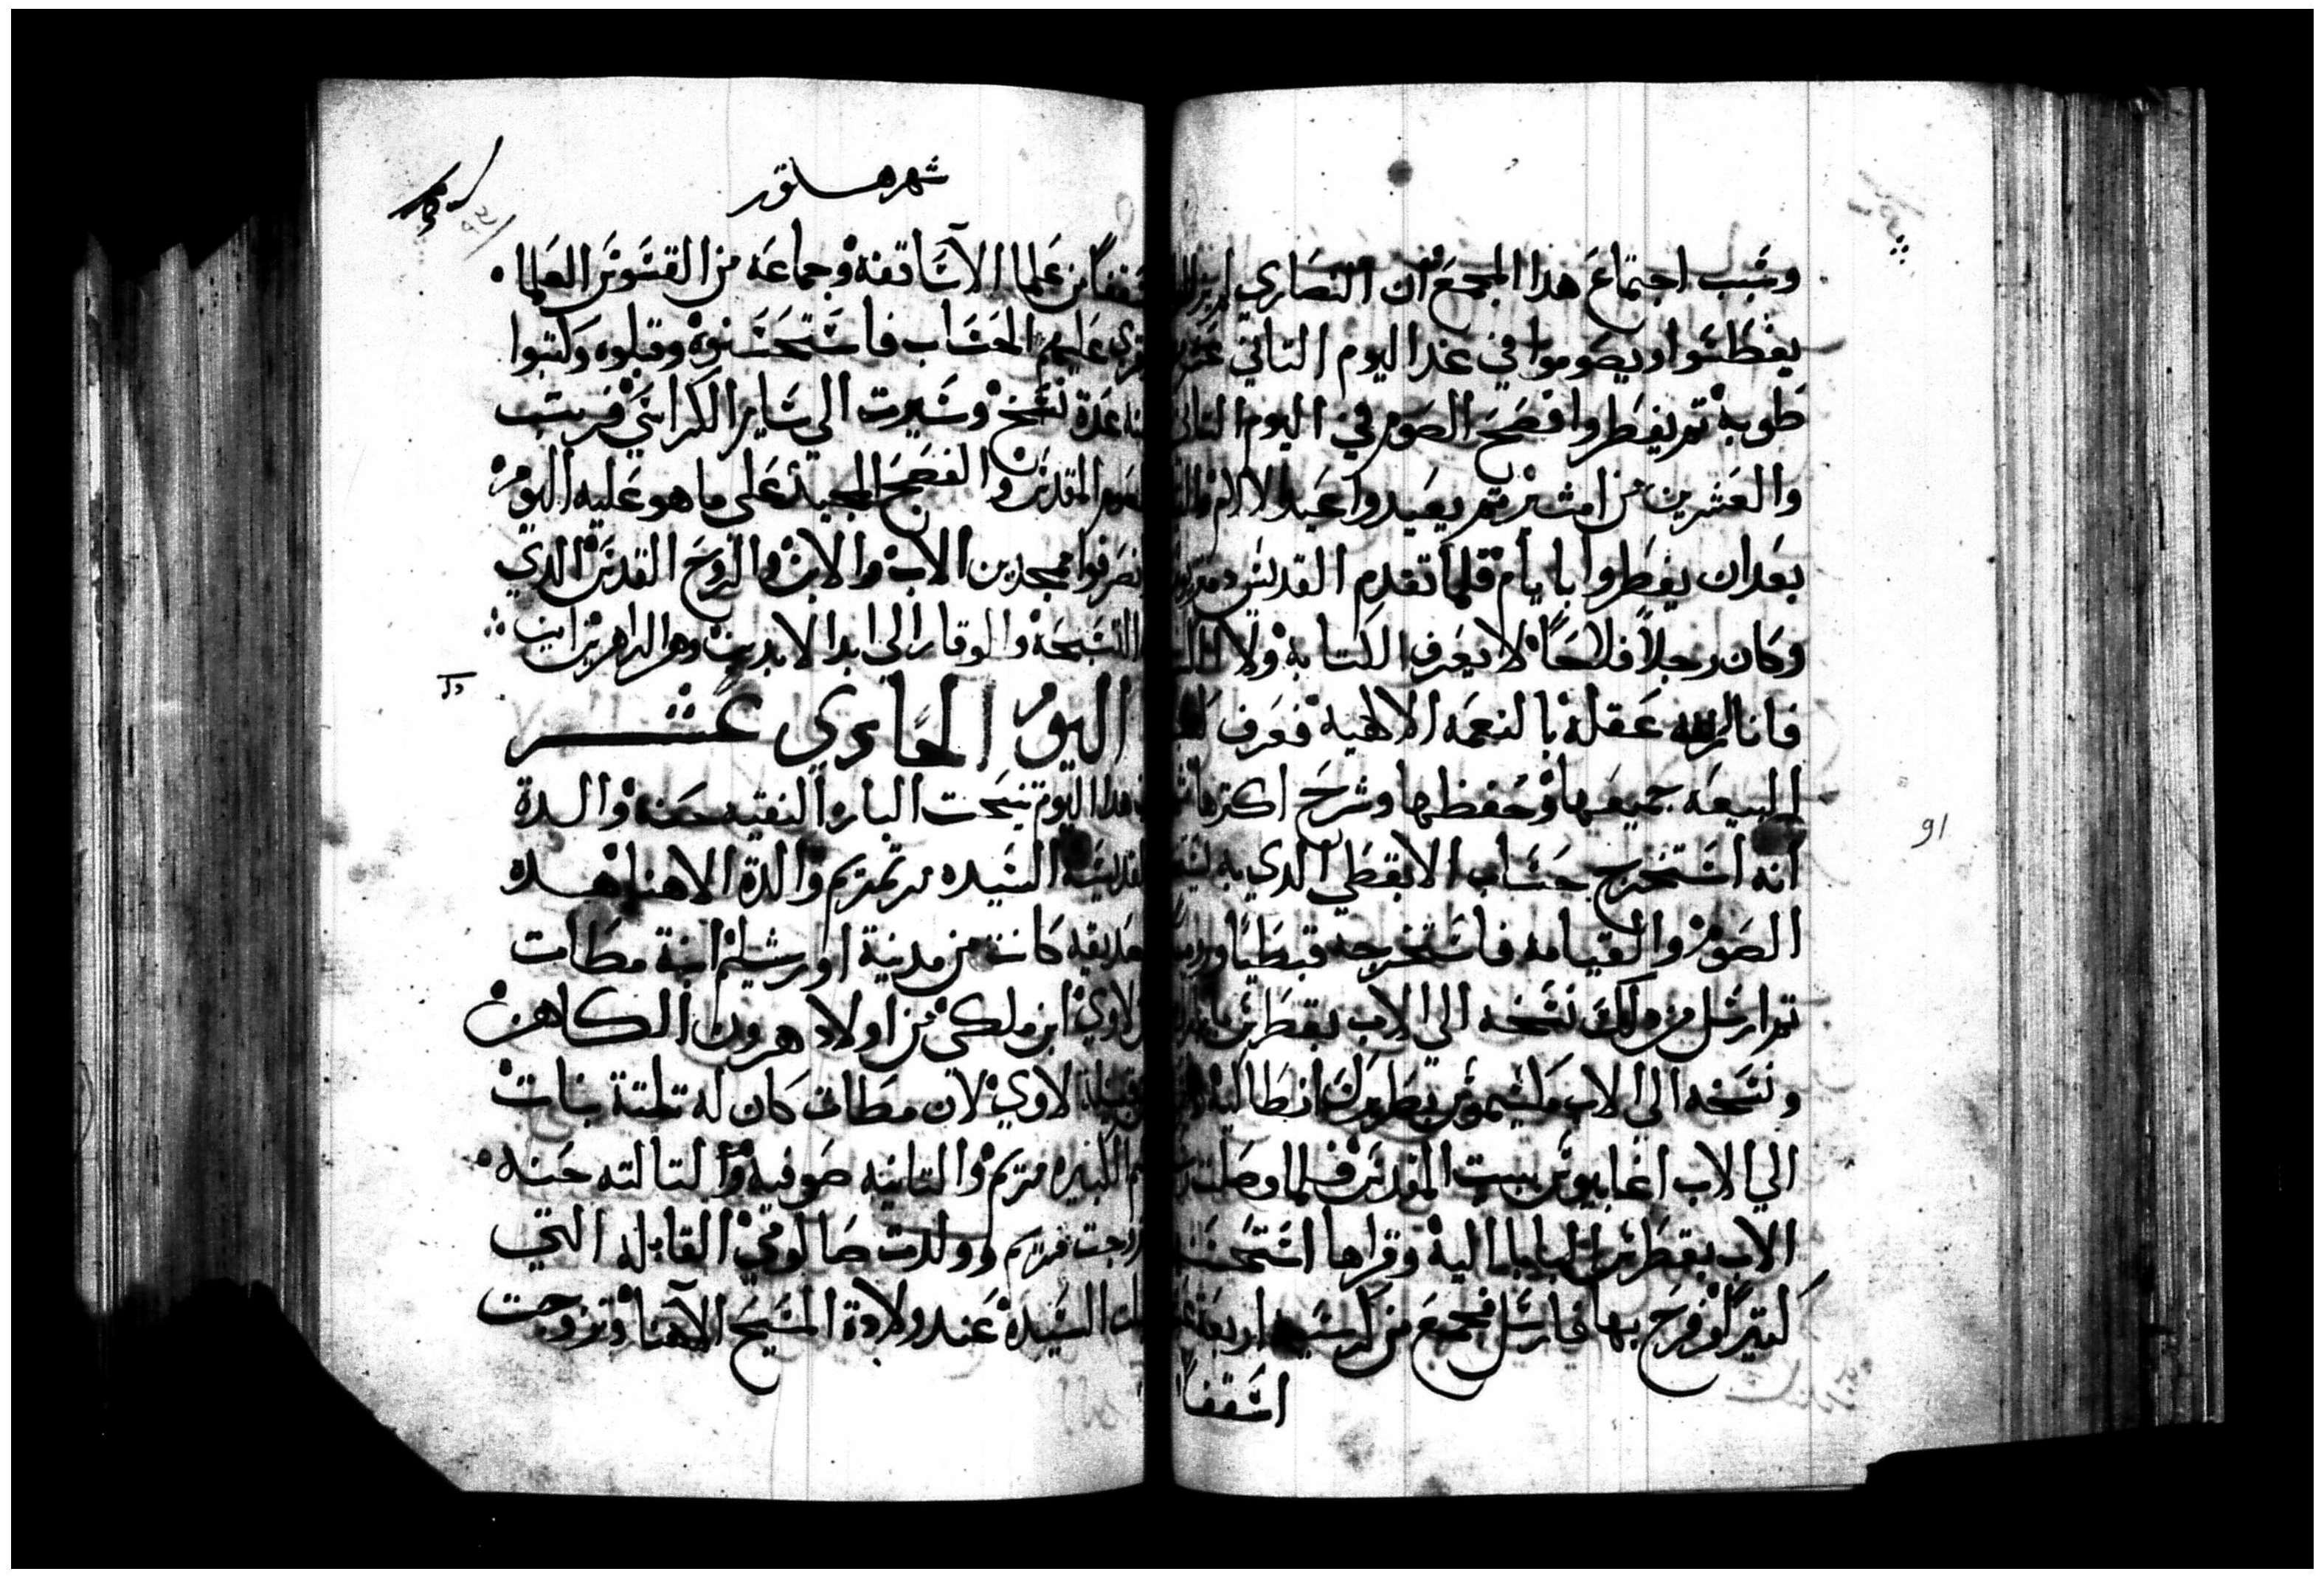 وسبب اجتماع هدا المجمع ان النصارى
يغطسوا ويصوموا في غد اليوم التاني عشر
طوبه تم يفطروا فصح الصوم في اليوم التاني
والعشرين من امشير تم يعيدوا عيد الالام
بعد ان يفطروا بايام فلما تقدم القديس
وكان رجلاً فلاحاً لا يعرف الكتابه ولا
فانار الله عقله بالنعمه الالهيه فعرف
البيعه جميعها وحفظها وشرح اكترها
انه استخرج حساب الابقطي الدي به
الصوم والقيامه فاستخرجه قبطياً
تم ارسل من دلك نسخه الى الاب بقطر
ونسخه الى الاب مكسيموس بطريرك انطاليه
الي الاب اغابيوس بيت المقدس فلما وصلت
الاب بقطر البابا اليه وقراها استحسنها
كتيراً وفرح بها فارسل فجمع من كرسيه اربعة
اسقفاً
91
شهر هـتور
اسقفاً من علما الاساقفه وجماعه من القسوس العلما
قرى عليهم الحساب فاستحسنوه وقبلوه وكتبوا
منه عدة نسخ وسيرت الي ساير الكراسي فرتب
الصوم المقدس والفصح المجيد على ما هو عليه اليوم
وانصرفوا ممجدين الاب والابن والروح القدس الدي
له التسبحه والوقار الى ابد الابدين ودهر الداهرين امين
اليوم الحادي عشر
في هدا اليوم تنيحت الباره النقيه حنه والدة
القديسه السيده مرتمريم والدة الاهنا هده
الصديقه كانت من مدينة اورشليم ابنة مطات
بن لاوي ابن ملكي من اولاد هرون الكاهن
من قبيلة لاوي لان مطات كان له تلتة بنات
اسم الكبيره مريم والتانيه صوفيه والتالته حنه
تزوجت مريم وولدت صالومي القابله التي
قبلت السيده عند ولادة المسيح الاهنا وتزوجت